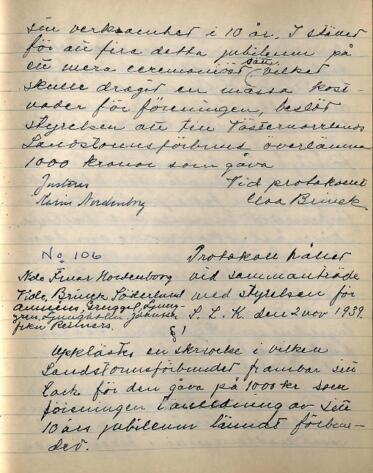 sin verksamhet i 10 år. I stället
för att fira detta jubileum på
ett mera ceremoniöst sätt vilket
skulle dragit en massa kost-
nader för föreningen, beslöt
styrelsen att till Västernorrlands
Landstormsförbund överlämna
1000 kronor som gåva
Justeras Vid protokollet
Karin Nordenborg Elsa Brinck
No 106 Protokoll hållet
Nde Fruar Nordenborg vid sammanträde
Tide, Brinck, Söderlund med styrelsen för
S. L. K. den 2 nov 1939
frkn
§ 1
Upplästes en skrivelse i vilken
Landstormsförbundet frambar sitt
tack för den gåva på 1000 kr som
föreningen i anledning av sitt
10 års jubileum lämnat förbun-
det.